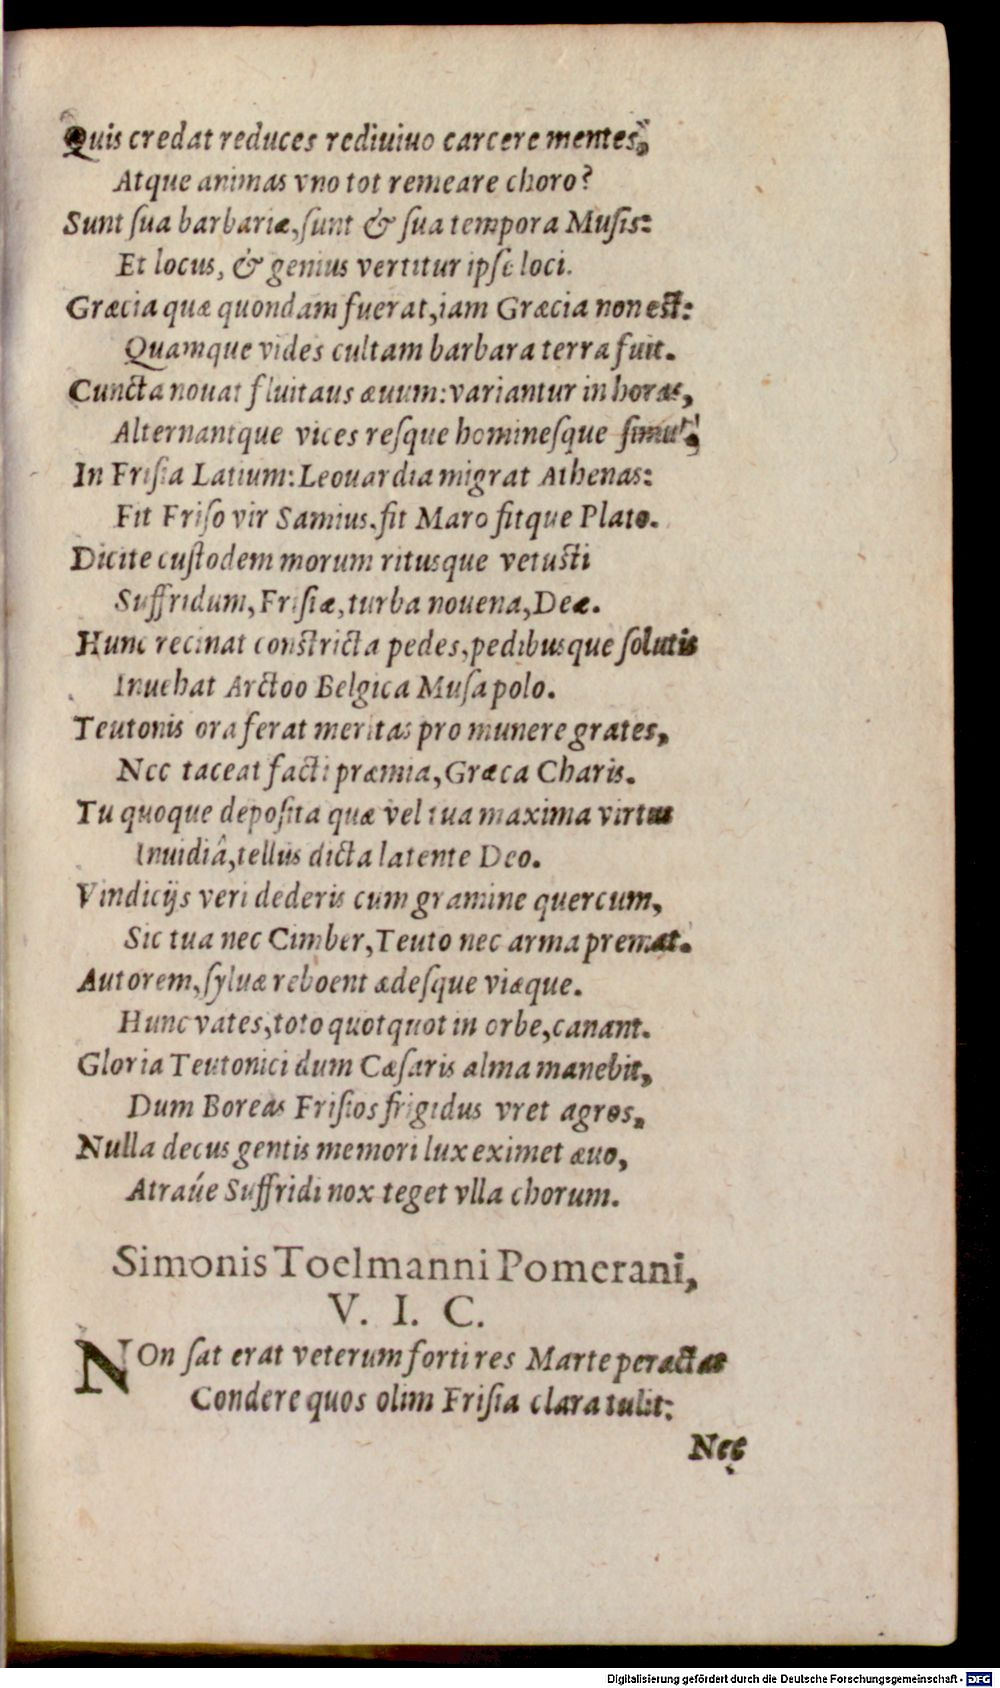 Quis credat reduces rediuiuo carcere mentes,
Atque animas vno tot remeare choro?
Sunt ſua barbariæ, ſunt & ſua tempora Muſis:
Et locus, & genius vertitur ipſe loci.
Græcia quæ quondam fuerat, iam Græcia non est:
Quamque vides cultam barbara terra fuit.
Cuncta nouat fluitans æuum: variantur in horas,
Alternantque vices reſque hominesque ſimul,
In Friſia Latium: Leouardia migrat Athenas:
Fit Friſo vir Samius, fit Maro fitque Plato.
Dicite cuſtodem morum ritusque vetusti
Suffridum, Friſiæ, turba nouena, Deæ.
Hunc recinat constricta pedes, pedibusque ſolutis
Inuehat Arctoo Belgica Muſa polo.
Teutonis ora ferat meritas pro munere grates,
Nec taceat facti præmia, Græca Charis.
Tu quoque depoſita quæ vel tua maxima virtus
Inuidiâ, tellus dicta latente Deo.
Vindicijs veri dederis cum gramine quercum,
Sic tua nec Cimber, Teuto nec arma premat.
Autorem, ſyluæ reboent ædeſque viæque.
Hunc vates, toto quotquot in orbe, canant.
Gloria Teutonici dum Cæſaris alma manebit,
Dum Boreas Friſios frigidus vret agros,
Nulla decus gentis memori lux eximet æuo,
Atraúe Suffridi nox teget vlla chorum.
Simonis Toelmanni Pomerani,
V. I. C.
NOn ſat erat veterum forti res Marte peractas
Condere quos olim Friſia clara tulit:
Nec
Digitalisierung gefördert durch die Deutsche Forschungsgemeinschaft - DFG